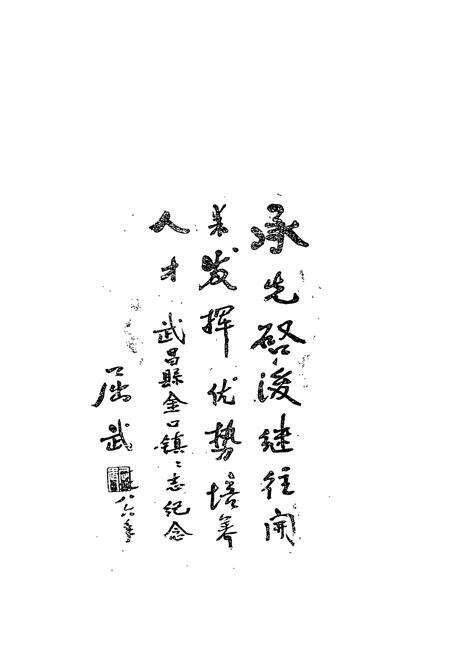 承先启后继往开
来发挥优势培养
人才 武昌縣金口镇志纪念
屈武
八六年